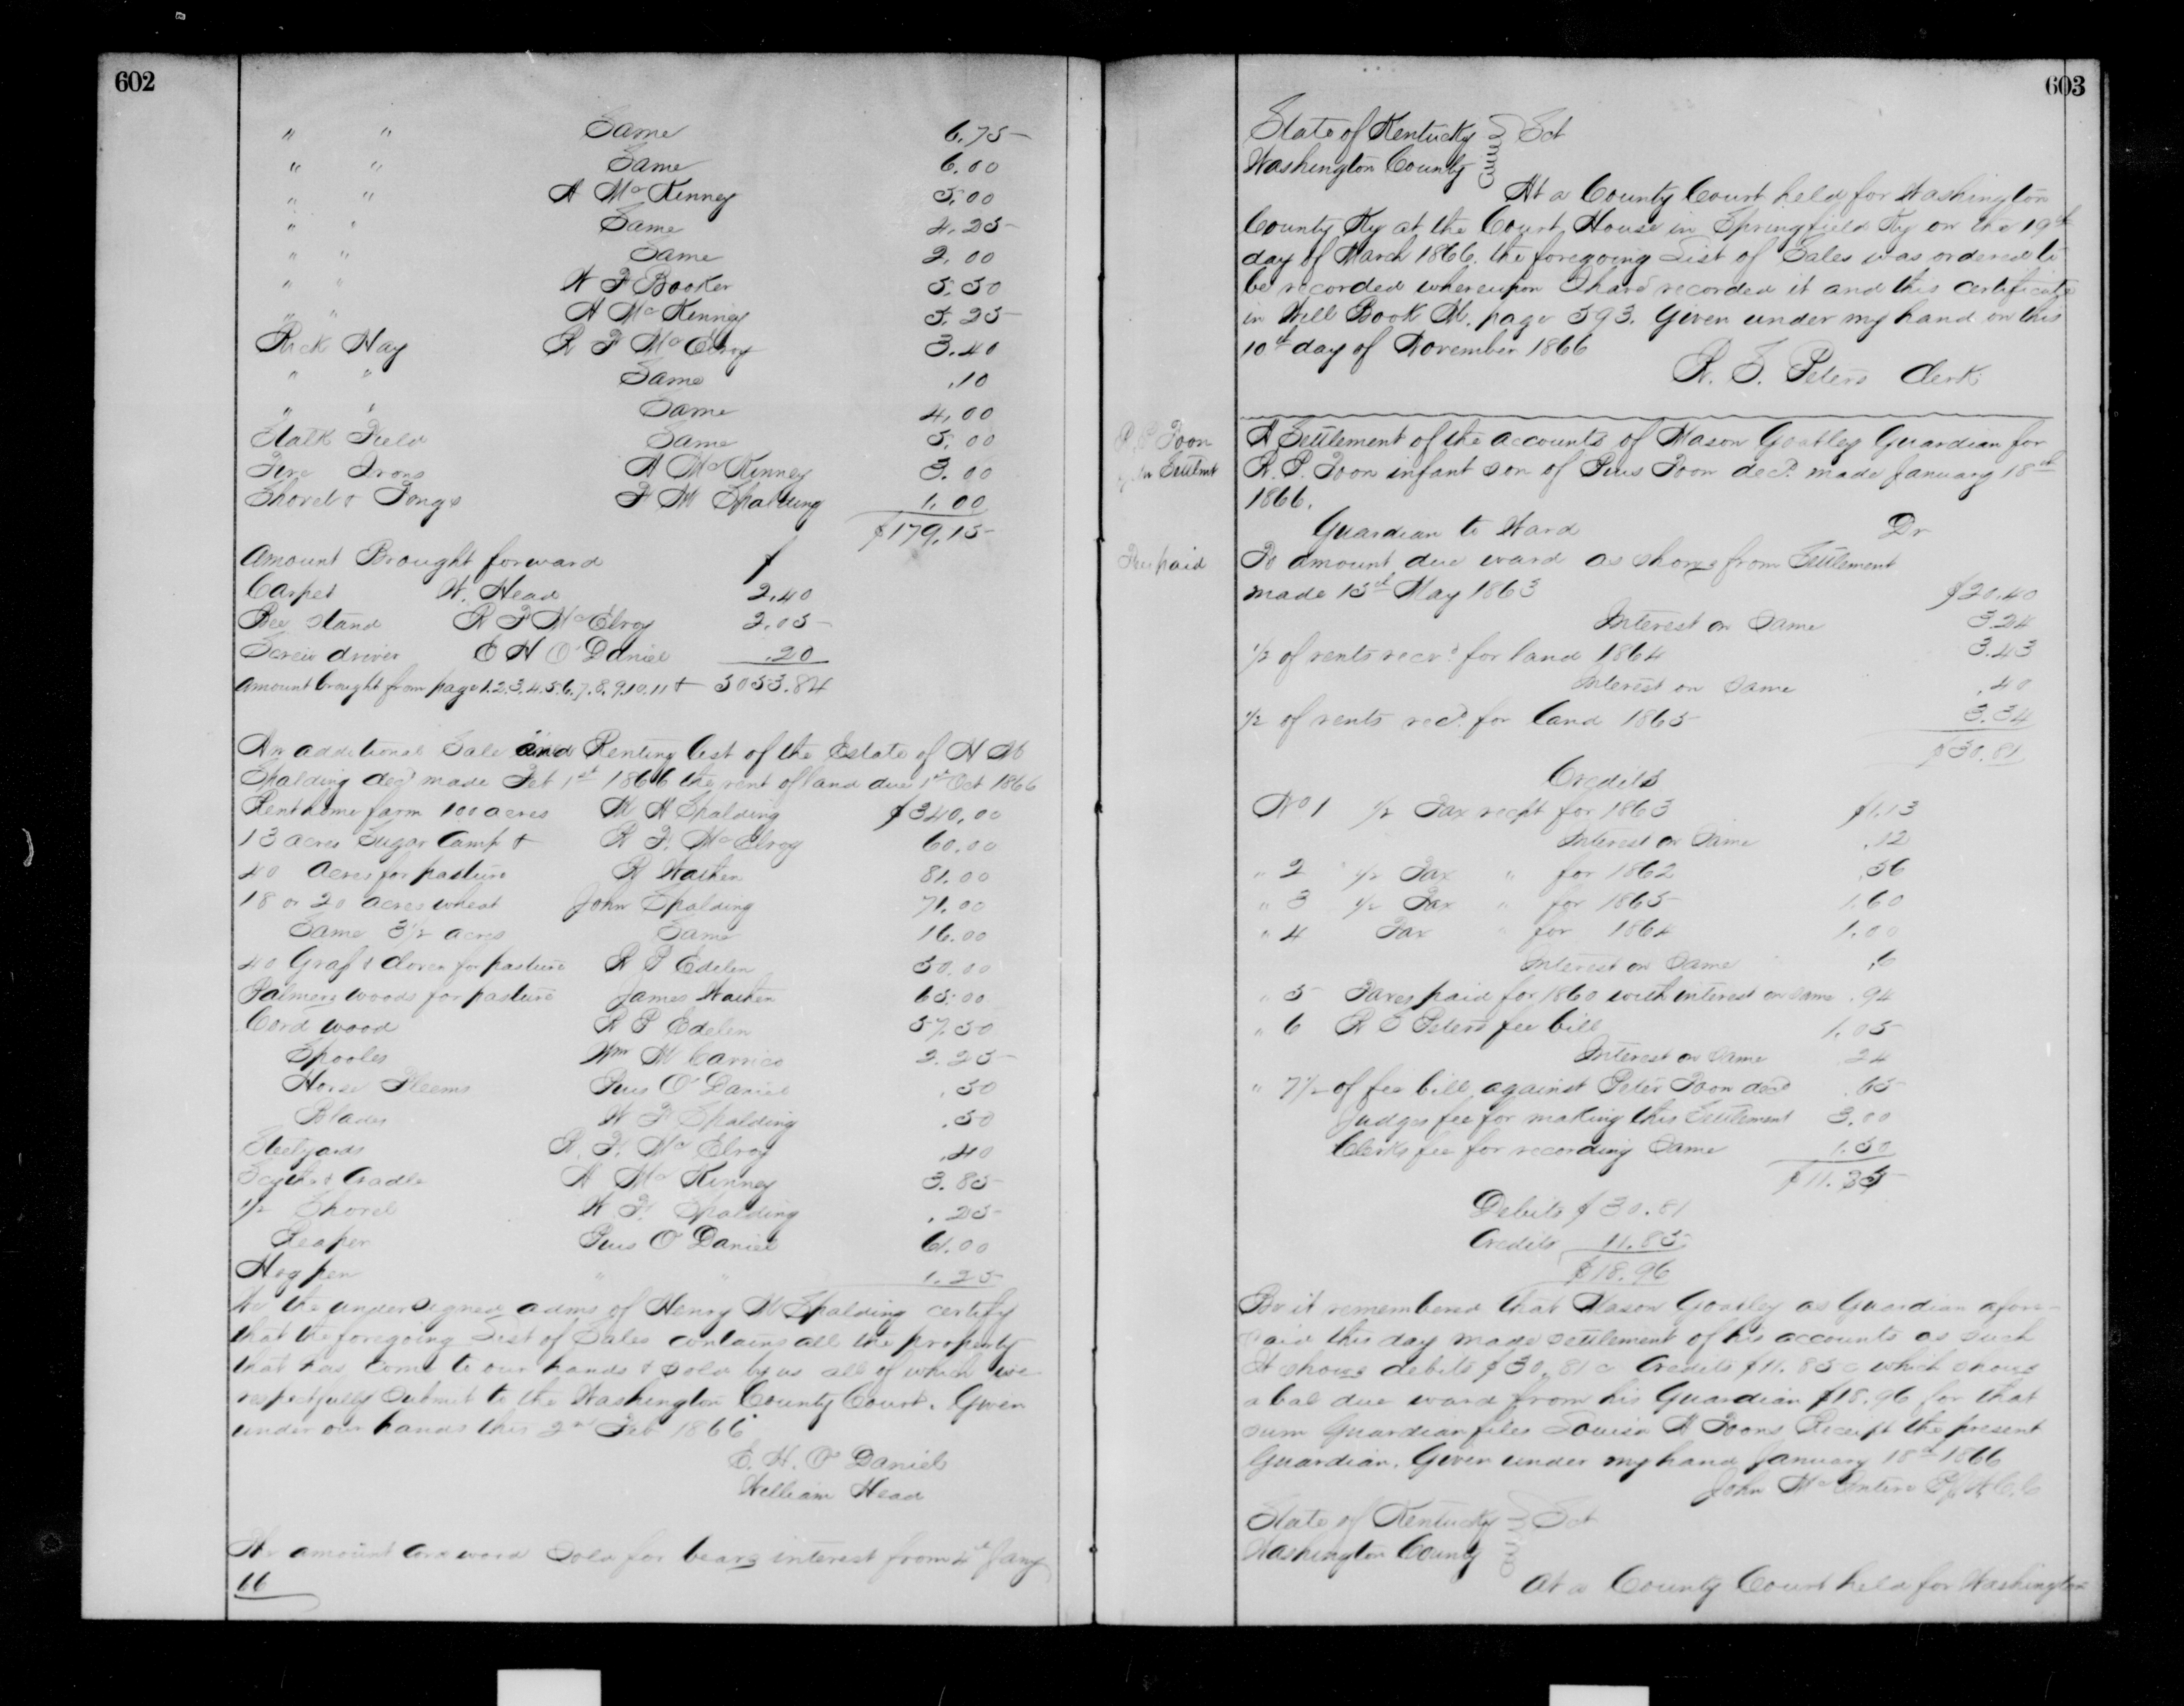 602
" " Same 6.75
" " Same 6.00
" " A McKenney 5.00
" " Same 4.25
" " Same 2.00
" " W F Booker 5.50
" " A McKenney 5.25
Rick Hay R F McElroy 3.40
" " Same .10
" " Same 4.00
Stalk Field Same 5.00
Fire Irons A McKenney 3.00
Shovel & Tongs F M Spalding 1.00
$179.15
Amount Brought forward $
Carpet W. Head 2.40
Bee stand R F McElroy 2.05
Screw driver E H O'Daniel .20
Amount brought from page 1.2.3.4.5.6.7.8.9.10.11 & 5053.84
An additional Sale and Renting list of the Estate of H M
Spalding decd made Feb 1st 1866 the rent of land due 1st Oct 1866
Rent home farm 100 acres M A Spalding $340.00
13 acres Sugar Camp & R F. McElroy 60.00
40 Acres for pasture R Wathen 81.00
18 or 20 acres wheat John Spalding 71.00
Same 3 1/2 acres Same 16.00
40 Grass & Clover for pasture R P Edelen 50.00
Palmers woods for pasture James Wathen 65.00
Cord wood R P Edelen 57.50
Spooles Wm M Carrico 2.25
Horse Fleems Pius O'Daniel .50
Blades W F Spalding .50
Steelyards R. F. McElroy .40
Scythe & Cradle A McKenney 3.85
1/2 Shovel W F. Spalding .25
Reaper Pius O'Daniel 61.00
Hog pen " " 1.25
We the undersigned adms of Henry M Spalding certify
that the foregoing List of Sales contains all the property
that has come to our hands & sold by us all of which we
respectfully submit to the Washington County Court. Given
under our hands this 2nd Feb 1866
E. H. O'Daniel
William Head
The amount cord wood sold for bears interest from 4th Jany
66
603
State of Kentucky Sct
Washington County
At a County Court held for Washington
County Ky at the Court House in Springfield Ky on the 19th
day of March 1866. the foregoing List of Sales was ordered to
be recorded whereupon I have recorded it and this certificate
in Will Book M. page 593. Given under my hand on this
10th day of November 1866
R. S. Peters Clerk
R. P Toon
Gdn Settlmt
A Settlement of the accounts of Mason Goatley Guardian for
R. P. Toon infant son of Pius Toon decd. made January 18th
1866.
Guardian to Ward Dr
Fee paid
To amount due ward as shows from Settlement
made 15th May 1863 $20.40
Interest on Same 3.24
1/2 of rents recvd for land 1864 3.43
Interest on Same .40
1/2 of rents recd. for land 1865 3.34
$30.81
Credits
No 1 1/2 Tax recpt for 1863 $1.13
Interest on Same .12
" 2 " 1/2 Tax " for 1862 .56
" 3 1/2 Tax " for 1865 1.60
" 4 Tax " for 1864 1.00
Interest on Same .6
" 5 Taxes paid for 1860 with interest on same .94
" 6 R S Peters fee bill 1.05
Interest on Same .24
" 7 1/2 of fee bill against Peter Toon decd .65
Judges fee for making this Settlement 3.00
Clerks fee for recording Same 1.50
Debits $30.81
Credits 11.85
$18.96
Be it remembered that Mason Goatley as Guardian afore-
said this day made settlement of his accounts as such
It shows debits $30.81 c Credits $11.85 c which shows
a bal due ward from his Guardian $18.96 for that
sum Guardian files Louisa A Toons Receipt the present
Guardian. Given under my hand January 18th 1866
John McIntire PJ. W.C.C
State of Kentucky Sct
Washington County
At a County Court held for Washington